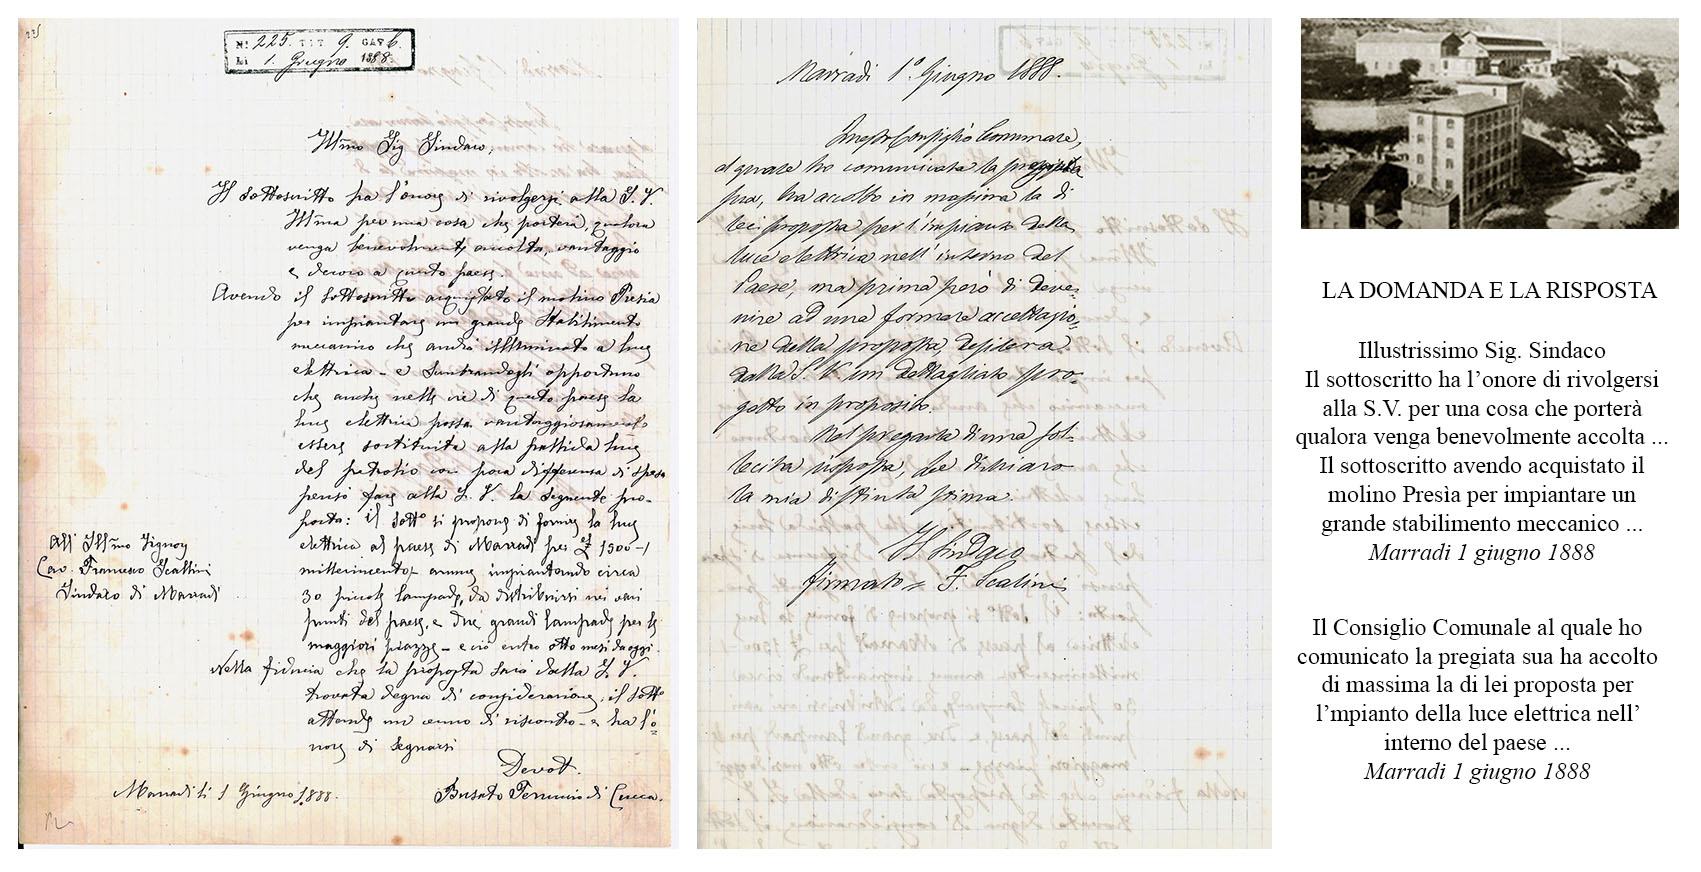 225
N° 225. TIT 9. CAT 6.
Li 1. Giugno 1888.
Ill̃mo Sig Sindaco,
Il sottoscritto ha l'onore di rivolgersi alla S. V.
Ill̃ma per una cosa che porterà, qualora
venga benevolmente accolta, vantaggio
e decoro a questo paese.
Avendo il sottoscritto acquistato il molino Presia
per impiantare un grande Stabilimento
meccanico che andrà illuminato a luce
elettrica – e sembrandogli opportuno
che anche nelle vie di questo paese la
luce elettrica possa vantaggiosamente
essere sostituita alla pallida luce
del petrolio con poca differenza di spesa
pensò fare alla S. V. la seguente pro-
posta: il sotto si propone di fornire la luce
elettrica al paese di Marradi per £ 1500-
millecinquecento annue impiantando circa
30 piccole lampade, da distribuirsi nei vari
punti del paese, e due grandi lampade per le
maggiori piazze – e ciò entro otto mesi da oggi.
Nella fiducia che la proposta sarà dalla S. V.
trovata degna di considerazione, il sotto
attende un cenno di riscontro – e ha l'o-
nore di segnarsi
Devot.
Marradi li 1 Giugno 1888.
All' Ill̃mo Signor
Cav. Francesco Scalini
Sindaco di Marradi
Marradi 1° Giugno 1888.
Questo Consiglio Comunale,
al quale ho comunicata la pregiata
sua, ha accolto in massima la di
lei proposta per l'impianto della
luce elettrica nell' interno del
Paese, ma prima però di deve-
nire ad una formale accettazio-
ne della proposta, desidera
dalla S. V. un dettagliato pro-
getto in proposito.
Nel pregarla di una sol-
lecita risposta, le dichiaro
la mia distinta stima.
Il Sindaco
firmato = F. Scalini
LA DOMANDA E LA RISPOSTA
Illustrissimo Sig. Sindaco
Il sottoscritto ha l’onore di rivolgersi
alla S.V. per una cosa che porterà
qualora venga benevolmente accolta ...
Il sottoscritto avendo acquistato il
molino Presìa per impiantare un
grande stabilimento meccanico ...
Marradi 1 giugno 1888
Il Consiglio Comunale al quale ho
comunicato la pregiata sua ha accolto
di massima la di lei proposta per
l’mpianto della luce elettrica nell’
interno del paese ...
Marradi 1 giugno 1888